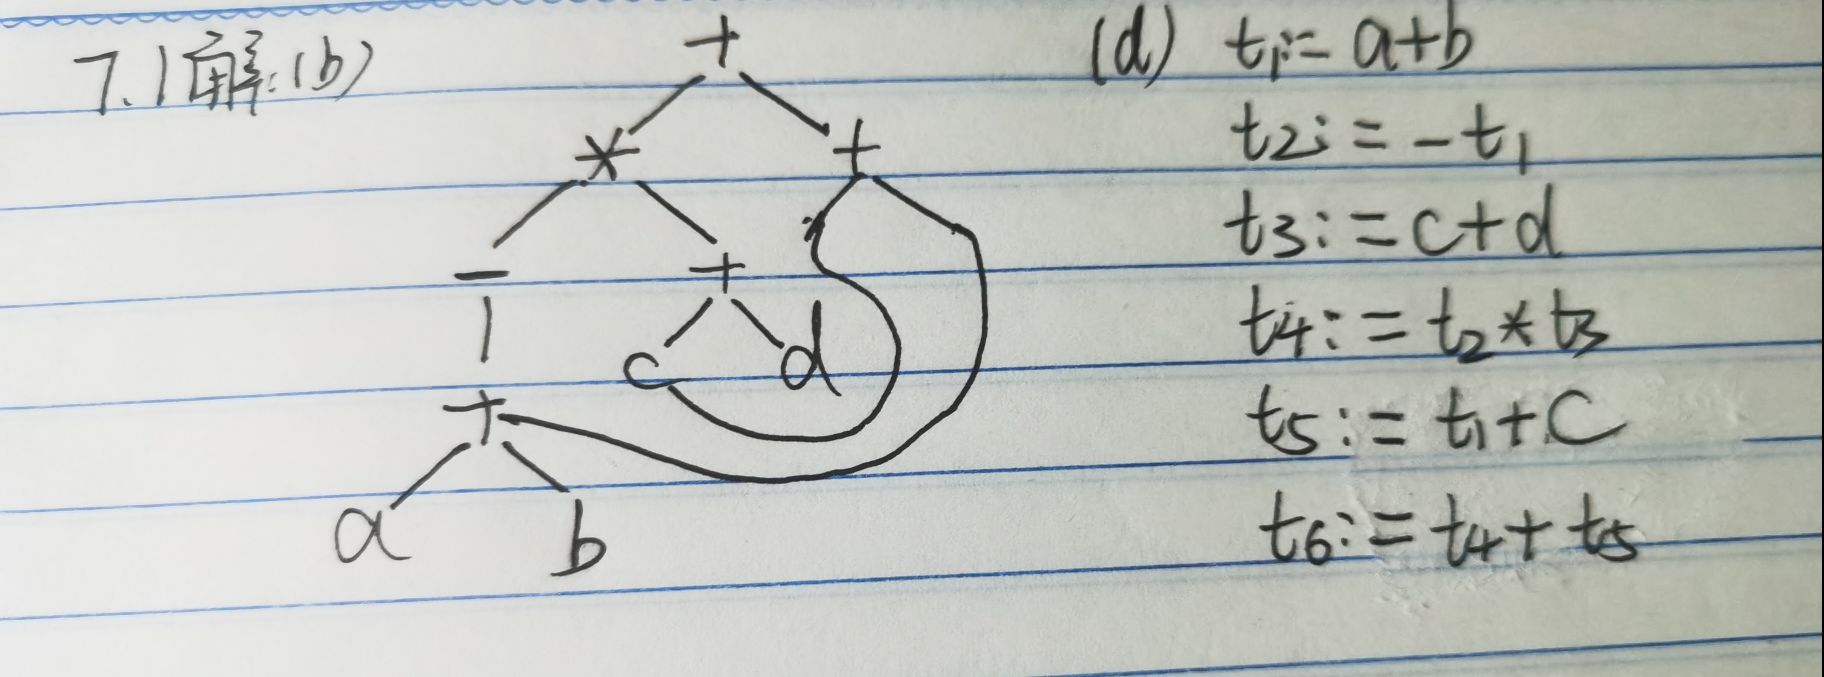 7.1解:(b)
+
* +
- +
c d
+
a b
(d) t1:= a+b
t2:= -t1
t3:= c+d
t4:= t2*t3
t5:= t1+c
t6:= t4+t5